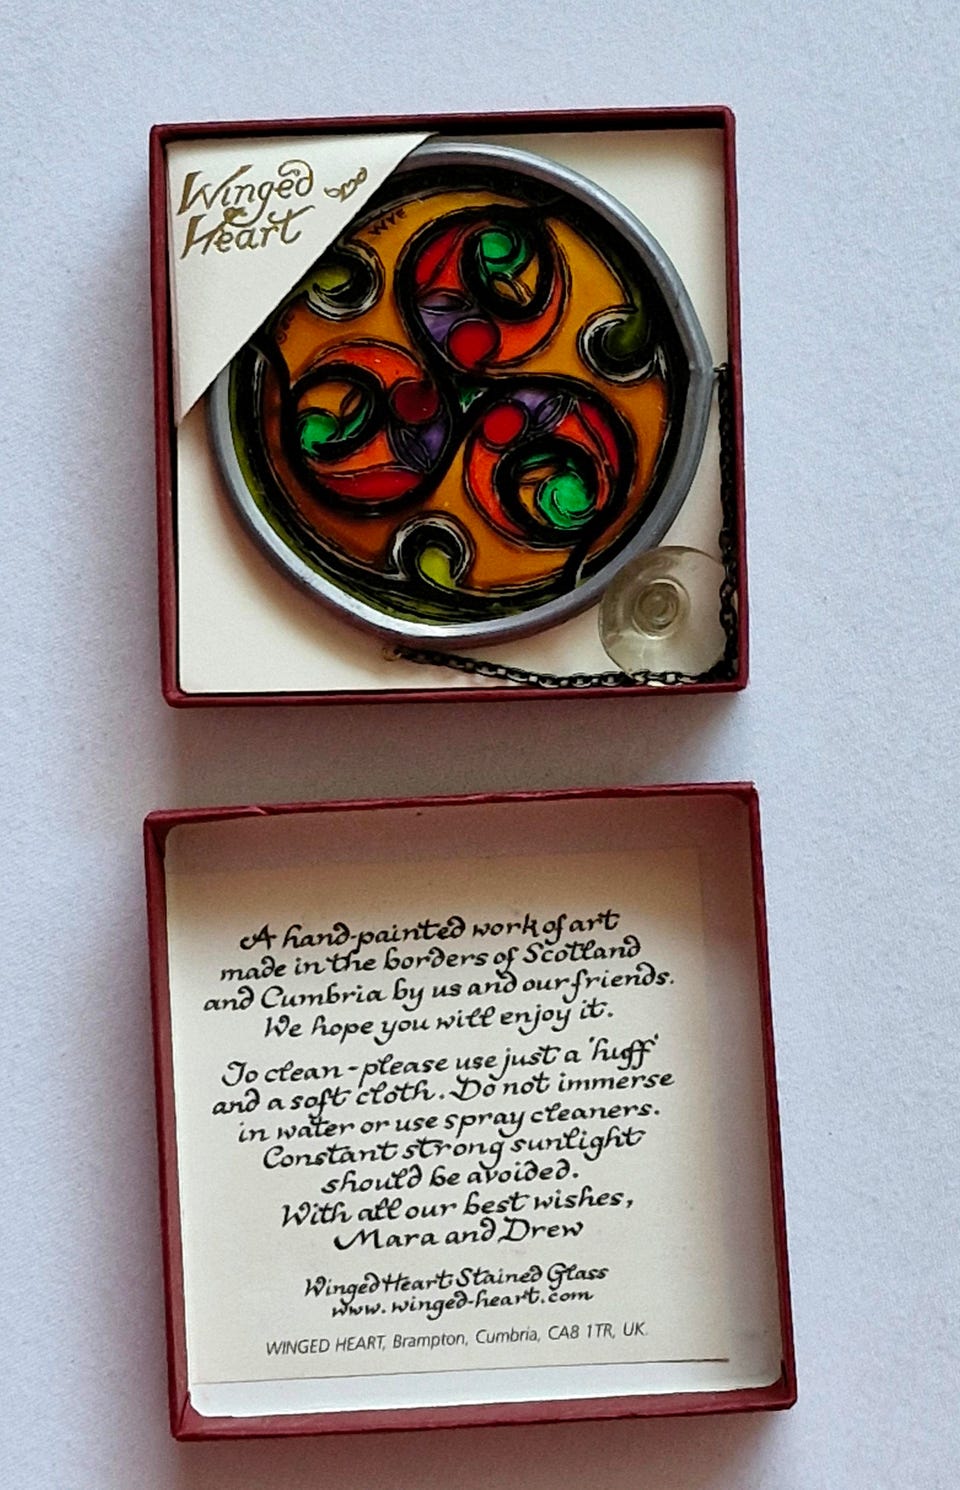 Winged
Heart
A hand-painted work of art
made in the borders of Scotland
and Cumbria by us and our friends.
We hope you will enjoy it.
To clean - please use just a 'huff'
and a soft cloth. Do not immerse
in water or use spray cleaners.
Constant strong sunlight
should be avoided.
With all our best wishes,
Mara and Drew
Winged Heart Stained Glass
www.winged-heart.com
WINGED HEART, Brampton, Cumbria, CA8 1TR, UK.